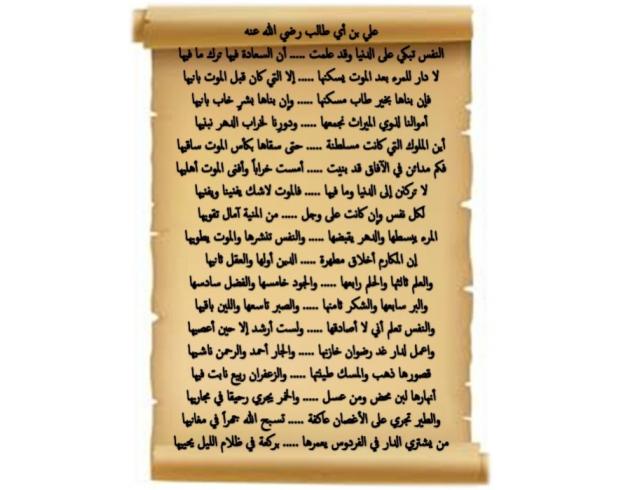 علي بن أي طالب رضي الله عنه
النفس تبكي على الدنيا وقد علمت ..... أن السعادة فيها ترك ما فيها
لا دار للمرء بعد الموت يسكنها ..... إلا التي كان قبل الموت بانيها
فإن بناها بخير طاب مسكنها ..... وإن بناها بشر خاب بانيها
أموالنا لذوي الميراث نجمعها ..... ودورنا لخراب الدهر نبنيها
أين الملوك التي كانت مسلطنة ..... حتى سقاها بكأس الموت ساقيها
فكم مدائن في الآفاق قد بنيت ..... أمست خراباً وأفنى الموت أهليها
لا تركنن إلى الدنيا وما فيها ..... فالموت لاشك يفنينا ويفنيها
لكل نفس وإن كانت على وجل ..... من المنية آمال تقويها
المرء يبسطها والدهر يقبضها ..... والنفس تنشرها والموت يطويها
إن المكارم أخلاق مطهرة ..... الدين أولها والعقل ثانيها
والعلم ثالثها والحلم رابعها ..... والجود خامسها والفضل سادسها
والبر سابعها والشكر ثامنها ..... والصبر تاسعها واللين باقيها
والنفس تعلم أني لا أصادقها ..... ولست أرشد إلا حين أعصيها
واعمل لدار غد رضوان خازنها ..... والجار أحمد والرحمن ناشيها
قصورها ذهب والمسك طينتها ..... والزعفران ربيع نابت فيها
أنهارها لبن محض ومن عسل ..... والخمر يجري رحيقا في مجاريها
والطير تجري على الأغصان عاكفة ..... تسبح الله جهراً في مغانيها
من يشتري الدار في الفردوس يعمرها ..... بركعة في ظلام الليل يحييها